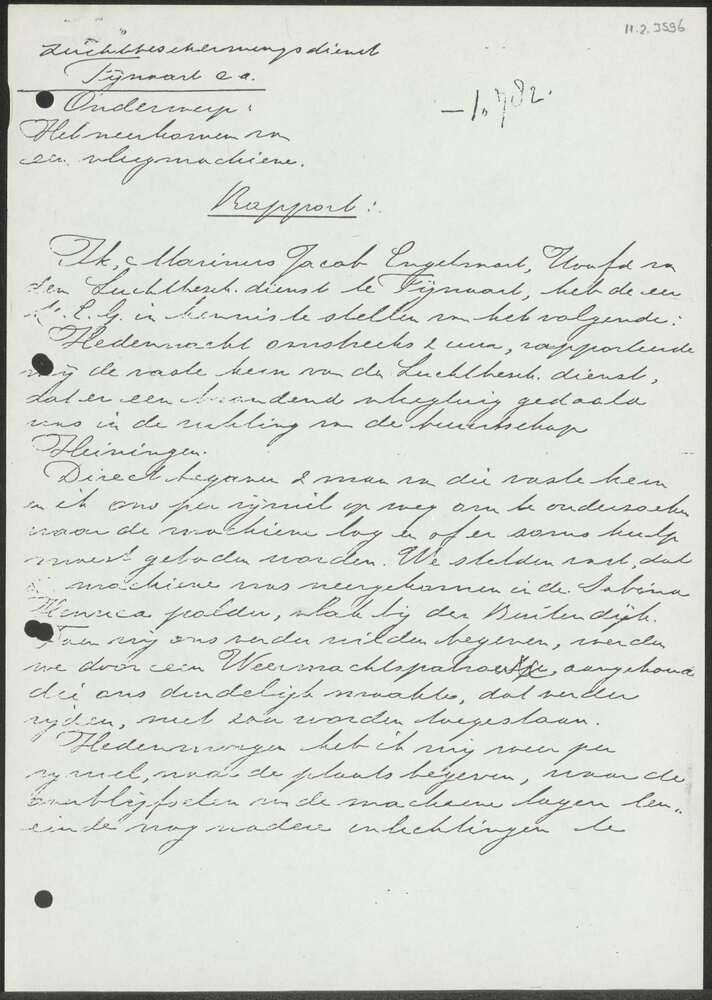 11.2.3596
Luchtbeschermingsdienst
Fijnaart e.a.
Onderwerp:
Het neerkomen van
een vliegmachiene.
Rapport:
Ik, Marinus Jacob Engelvaart, Hoofd van
den Luchtbesch. dienst te Fijnaart, heb de eer
U.E.G. in kennis te stellen van het volgende:
Hedennacht omstreeks 2 uur, rapporteerde
mij de vaste kern van de Luchtbesch. dienst,
dat er een brandend vliegtuig gedaald
was in de richting van de buurtschap
Heiningen.
Direct begaven 2 man van die vaste kern
en ik ons per rijwiel op weg om te onderzoeken
waar de machiene lag en of er soms hulp
moest geboden worden. We stelden vast, dat
machiene was neergekomen in de Sabina
Henrica polder, vlak bij den Buitendijk.
Toen wij ons verder wilden begeven, werden
we door een Weermachtspatrouille, aangehoud
die ons duidelijk maakte, dat verder
rijden, niet zou worden toegestaan.
Hedenmorgen heb ik mij weer per
rijwiel, naar de plaats begeven, waar de
overblijfselen van de machiene lagen ten
einde nog nadere inlichtingen te